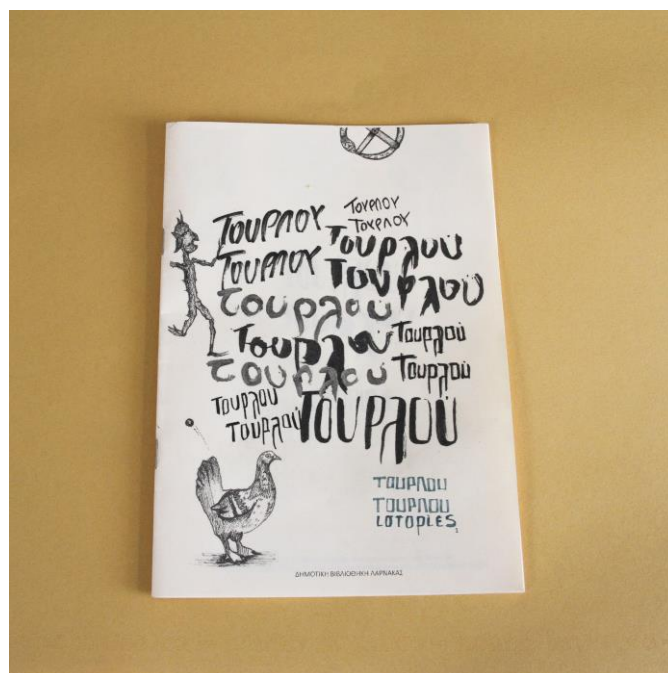 ΤΟΥΡΛΟΥ
ΤΟΥΡΛΟΥ
ΤΟΥΡΛΟΥ
Τουρλού
ΤΟΥΡΛΟΥ
Τουρλού
τουρλού
Τουρλού
Τουρλού
τουρλού
Τουρλού
Τουρλού
Τουρλού
Τουρλού
ΤΟΥΡΛΟΥ
ΤΟΥΡΛΟΥ
ιστορίες
ΔΗΜΟΤΙΚΗ ΒΙΒΛΙΟΘΗΚΗ ΛΑΡΝΑΚΑΣ